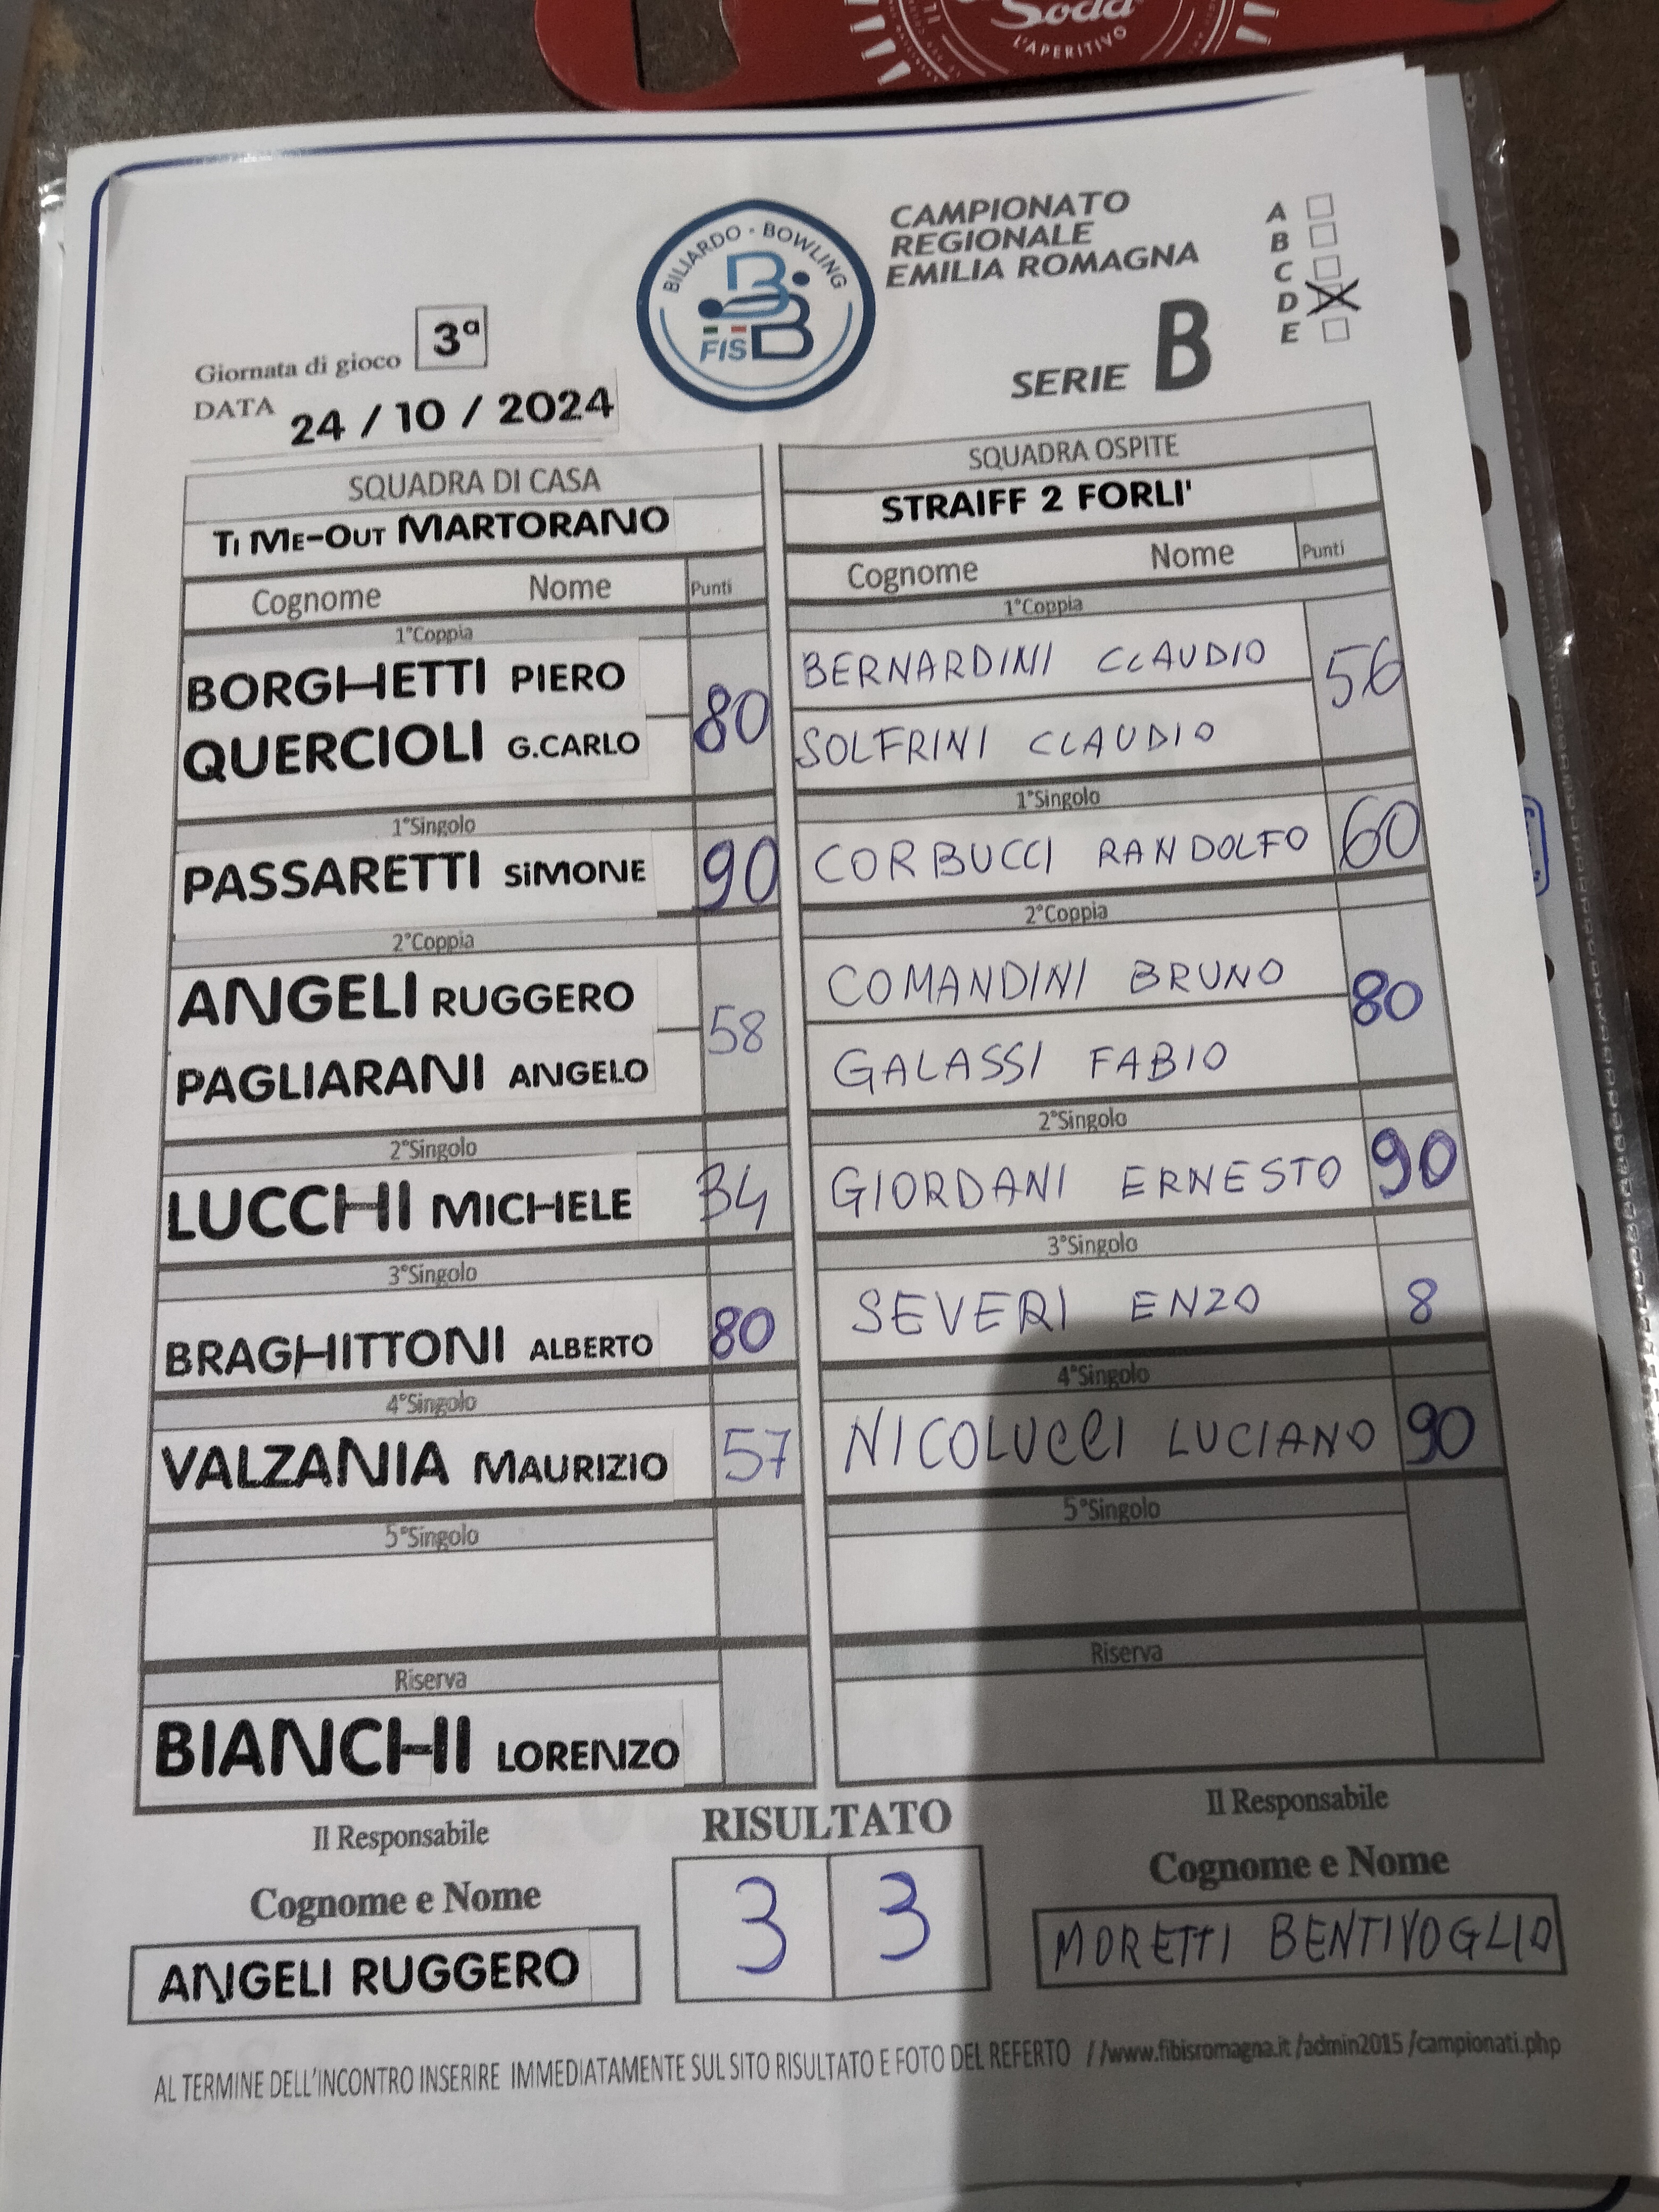 Soda
L'APERITIVO
BILIARDO - BOWLING
FISBB
CAMPIONATO
REGIONALE
EMILIA ROMAGNA
A
B
C
D
E
SERIE B
Giornata di gioco 3ª
DATA 24 / 10 / 2024
SQUADRA DI CASA
Ti Me-Out MARTORANO
Cognome Nome Punti
1°Coppia
BORGHETTI PIERO
QUERCIOLI G.CARLO
80
1°Singolo
PASSARETTI SiMONE 90
2°Coppia
ANGELI RUGGERO
PAGLIARANI ANGELO
58
2°Singolo
LUCCHI MICHELE 34
3°Singolo
BRAGHITTONI ALBERTO 80
4°Singolo
VALZANIA MAURIZIO 57
5°Singolo
Riserva
BIANCHI LORENZO
SQUADRA OSPITE
STRAIFF 2 FORLI'
Cognome Nome Punti
1°Coppia
BERNARDINI CLAUDIO
SOLFRINI CLAUDIO
56
1°Singolo
CORBUCCI RANDOLFO 60
2°Coppia
COMANDINI BRUNO
GALASSI FABIO
80
2°Singolo
GIORDANI ERNESTO 90
3°Singolo
SEVERI ENZO 8
4°Singolo
NICOLUCCI LUCIANO 90
5°Singolo
Riserva
Il Responsabile
Cognome e Nome
ANGELI RUGGERO
RISULTATO
3 3
Il Responsabile
Cognome e Nome
MORETTI BENTIVOGLIO
AL TERMINE DELL'INCONTRO INSERIRE IMMEDIATAMENTE SUL SITO RISULTATO E FOTO DEL REFERTO //www.fibisromagna.it /admin2015 /campionati.php